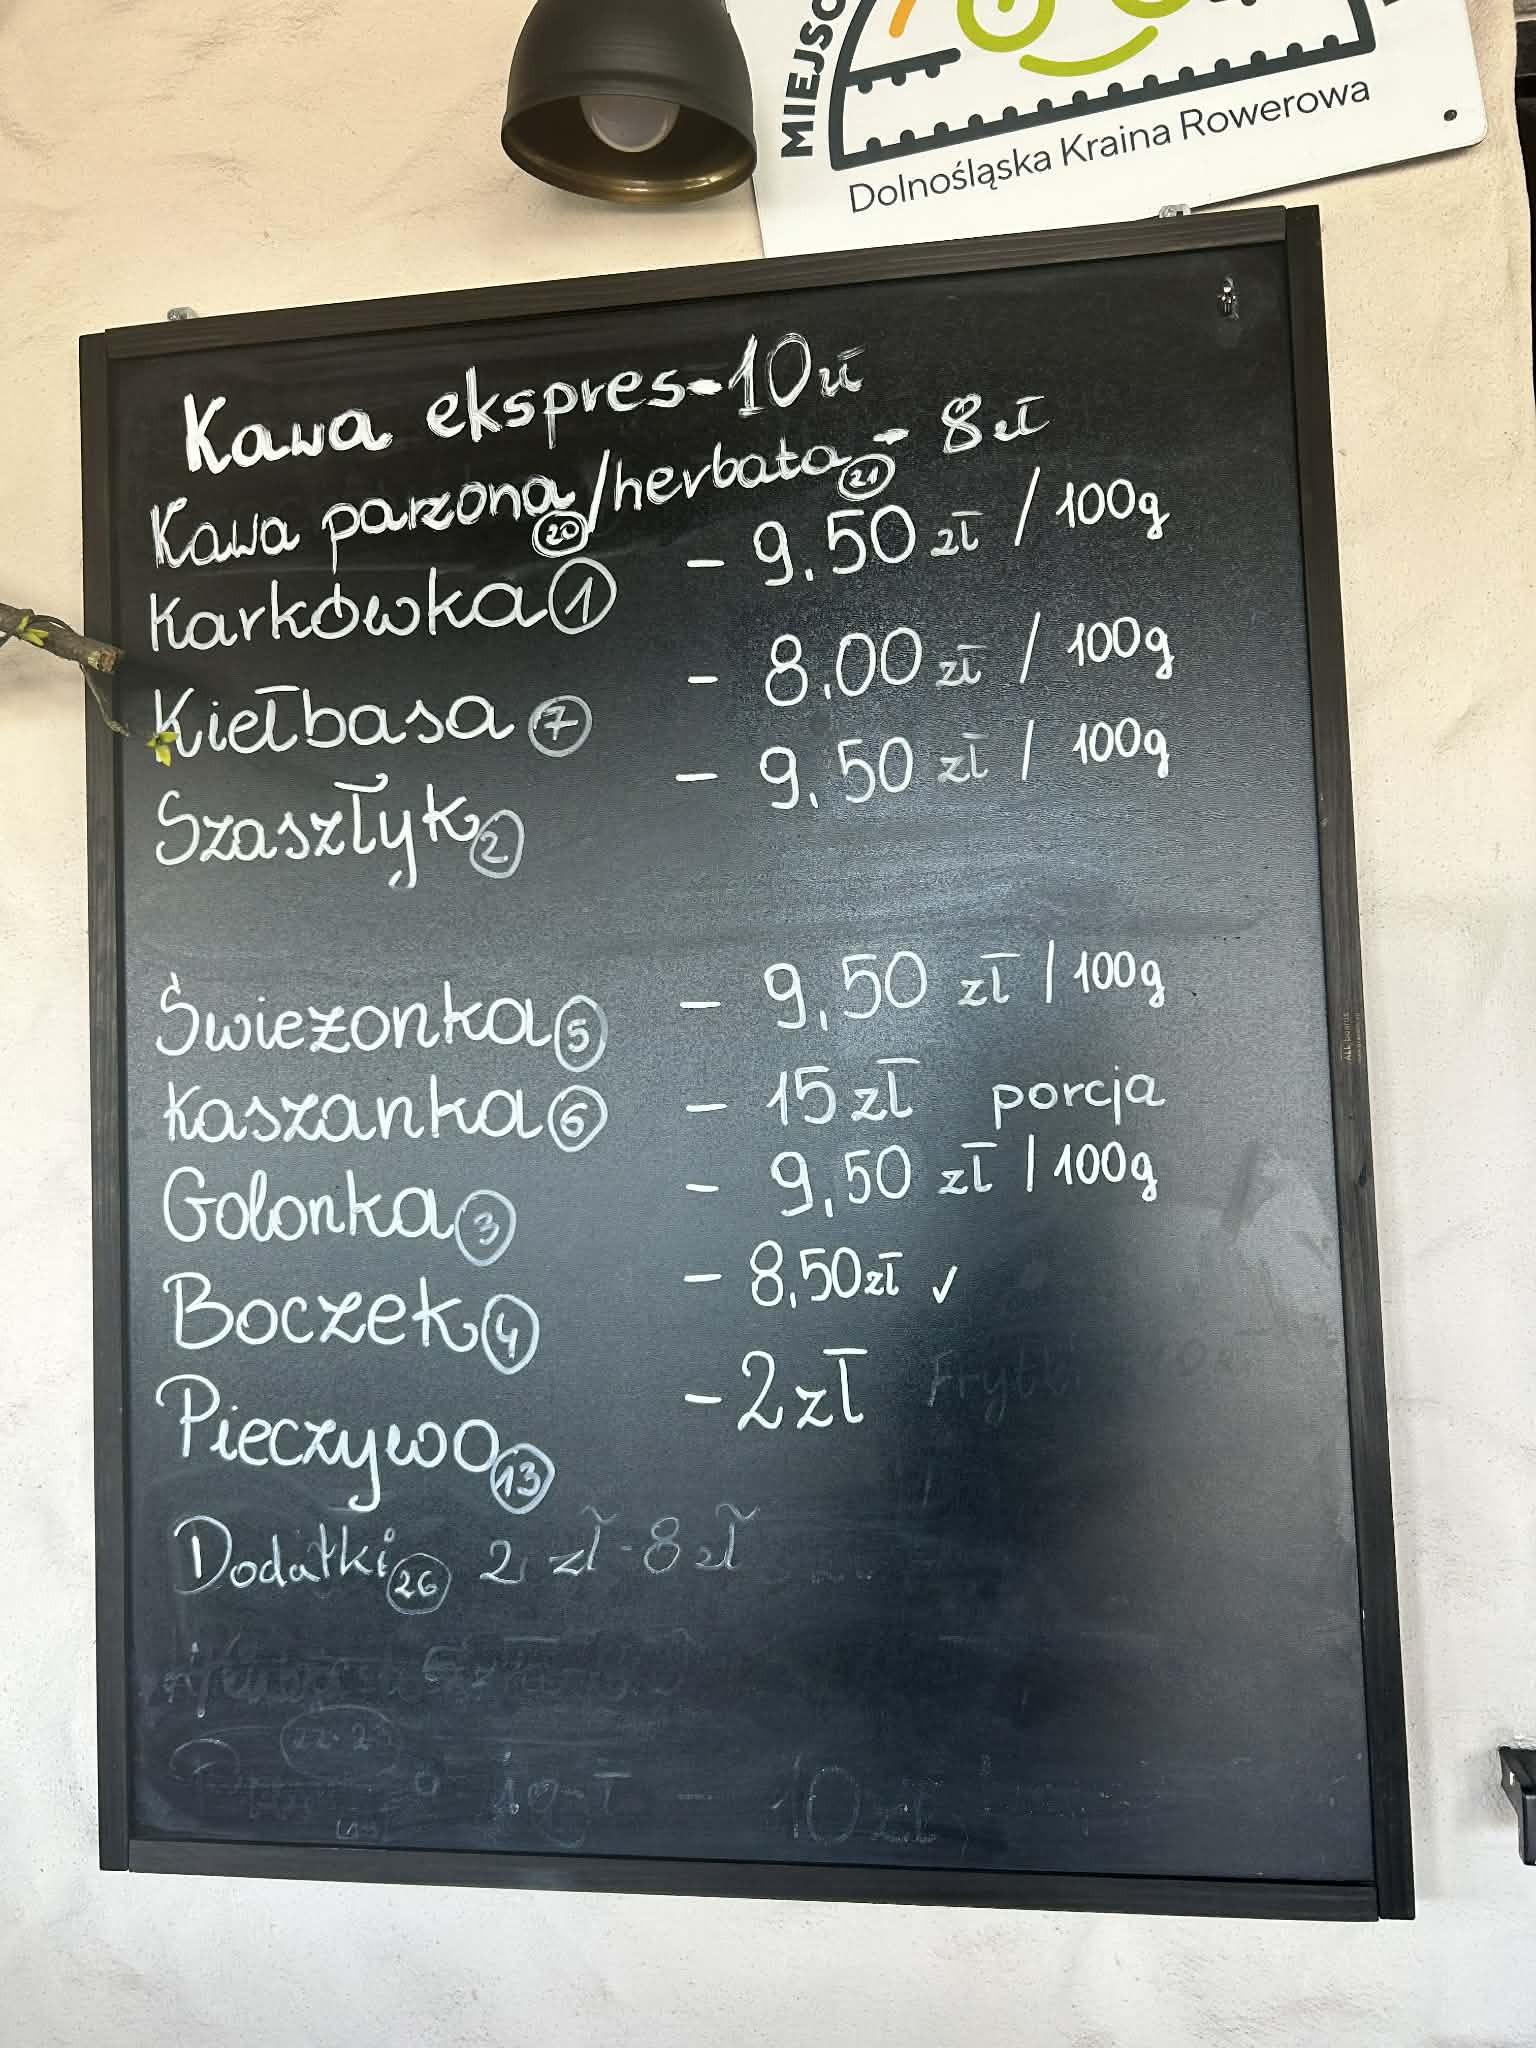 MIEJSC
Dolnośląska Kraina Rowerowa
Kawa ekspres-10zł
Kawa parzona 20 / herbata 21 - 8 zł
Karkówka 1 - 9,50 zł / 100g
Kiełbasa 7 - 8,00 zł / 100g
Szaszłyk 2 - 9,50 zł / 100g
Świeżonka 5 - 9,50 zł / 100g
Kaszanka 6 - 15 zł porcja
Golonka 3 - 9,50 zł / 100g
Boczek 4 - 8,50 zł ✓
Pieczywo 13 - 2 zł Frytki
Dodatki 26 2 zł - 8 zł
10 zł